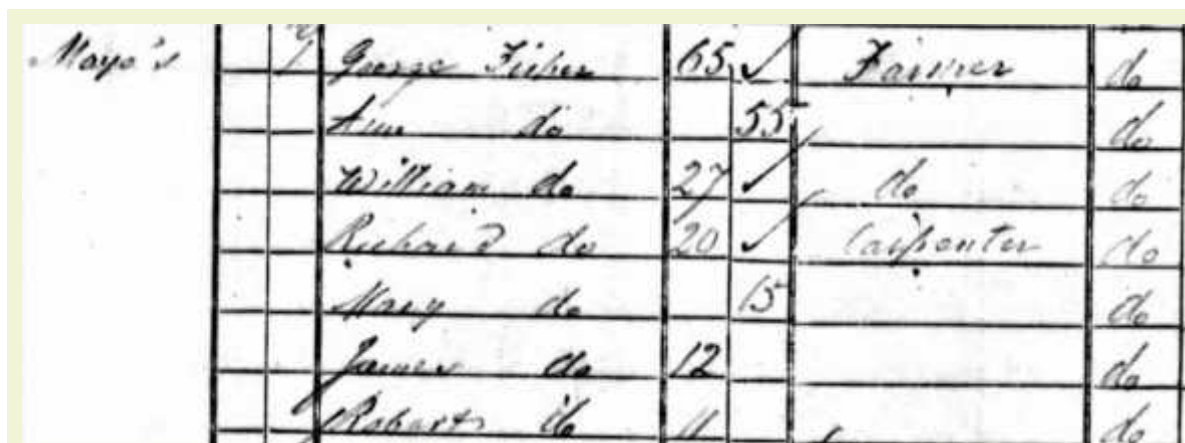 Mayo's 1 George Fisher 65 ✓ Farmer do
Ann do 55 do
William do 27 ✓ do do
Richard do 20 ✓ Carpenter do
Mary do 15 do
James do 12 do
Robert do 11 do